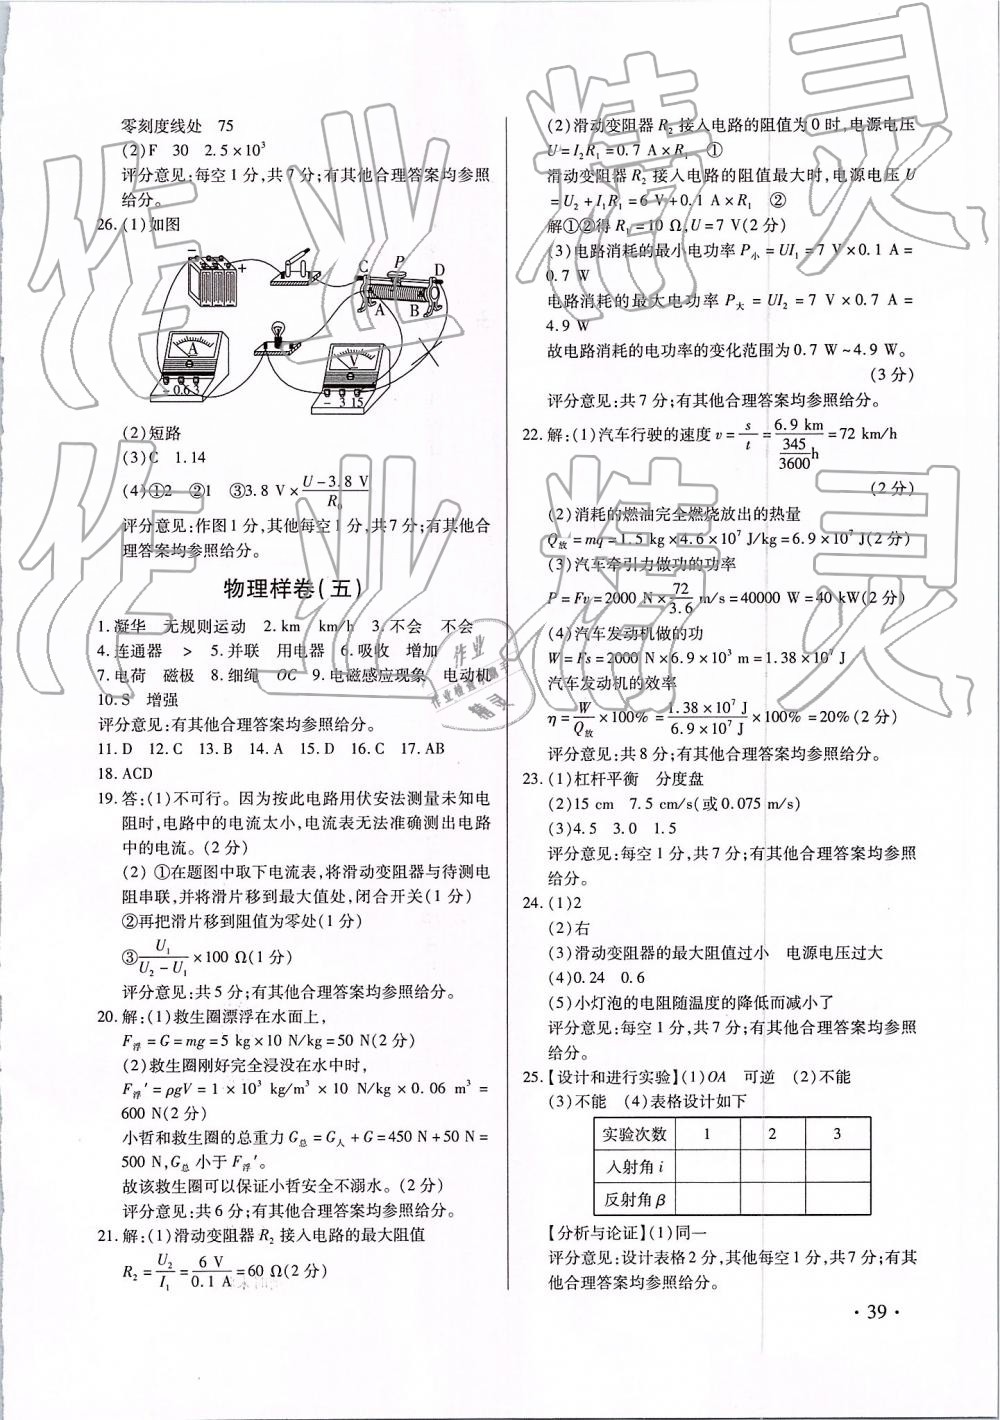 零刻度线处 75
(2)F 30 2.5×10³
评分意见:每空1分,共7分;有其他合理答案均参照
给分。
26.(1)如图
- + C P D
A B
A V
- 0.6 3
- 3 15
(2)短路
(3)C 1.14
(4)①2 ②1 ③3.8 V×(U-3.8 V)/R₀
评分意见:作图1分,其他每空1分,共7分;有其他合
理答案均参照给分。
物理样卷(五)
1.凝华 无规则运动 2.km km/h 3.不会 不会
4.连通器 > 5.并联 用电器 6.吸收 增加
7.电荷 磁极 8.细绳 OC 9.电磁感应现象 电动机
10.S 增强
评分意见:有其他合理答案均参照给分。
11.D 12.C 13.B 14.A 15.D 16.C 17.AB
18.ACD
19.答:(1)不可行。因为按此电路用伏安法测量未知电
阻时,电路中的电流太小,电流表无法准确测出电路
中的电流。(2分)
(2) ①在题图中取下电流表,将滑动变阻器与待测电
阻串联,并将滑片移到最大值处,闭合开关(1分)
②再把滑片移到阻值为零处(1分)
③U₁/(U₂-U₁)×100 Ω(1分)
评分意见:共5分;有其他合理答案均参照给分。
20.解:(1)救生圈漂浮在水面上,
F浮=G=mg=5 kg×10 N/kg=50 N(2分)
(2)救生圈刚好完全浸没在水中时,
F浮′=ρgV=1×10³ kg/m³×10 N/kg×0.06 m³=
600 N(2分)
小哲和救生圈的总重力G总=G人+G=450 N+50 N=
500 N,G总小于F浮′。
故该救生圈可以保证小哲安全不溺水。(2分)
评分意见:共6分;有其他合理答案均参照给分。
21.解:(1)滑动变阻器R₂接入电路的最大阻值
R₂=U₂/I₁=6 V/0.1 A=60 Ω(2分)
(2)滑动变阻器R₂接入电路的阻值为0时,电源电压
U=I₂R₁=0.7 A×R₁ ①
滑动变阻器R₂接入电路的阻值最大时,电源电压U
=U₂+I₁R₁=6 V+0.1 A×R₁ ②
解①②得R₁=10 Ω,U=7 V(2分)
(3)电路消耗的最小电功率P小=UI₁=7 V×0.1 A=
0.7 W
电路消耗的最大电功率P大=UI₂=7 V×0.7 A=
4.9 W
故电路消耗的电功率的变化范围为0.7 W~4.9 W。
(3分)
评分意见:共7分;有其他合理答案均参照给分。
22.解:(1)汽车行驶的速度v=s/t=6.9 km/(345/3600 h)=72 km/h
(2分)
(2)消耗的燃油完全燃烧放出的热量
Q放=mq=1.5 kg×4.6×10⁷ J/kg=6.9×10⁷ J(2分)
(3)汽车牵引力做功的功率
P=Fv=2000 N×72/3.6 m/s=40000 W=40 kW(2分)
(4)汽车发动机做的功
W=Fs=2000 N×6.9×10³ m=1.38×10⁷ J
汽车发动机的效率
η=W/Q放×100%=1.38×10⁷ J/6.9×10⁷ J×100%=20%(2分)
评分意见:共8分;有其他合理答案均参照给分。
23.(1)杠杆平衡 分度盘
(2)15 cm 7.5 cm/s(或0.075 m/s)
(3)4.5 3.0 1.5
评分意见:每空1分,共7分;有其他合理答案均参照
给分。
24.(1)2
(2)右
(3)滑动变阻器的最大阻值过小 电源电压过大
(4)0.24 0.6
(5)小灯泡的电阻随温度的降低而减小了
评分意见:每空1分,共7分;有其他合理答案均参照
给分。
25.【设计和进行实验】(1)OA 可逆 (2)不能
(3)不能 (4)表格设计如下
实验次数 1 2 3
入射角i
反射角β
【分析与论证】(1)同一
评分意见:设计表格2分,其他每空1分,共7分;有其
他合理答案均参照给分。
·39·
作业精灵